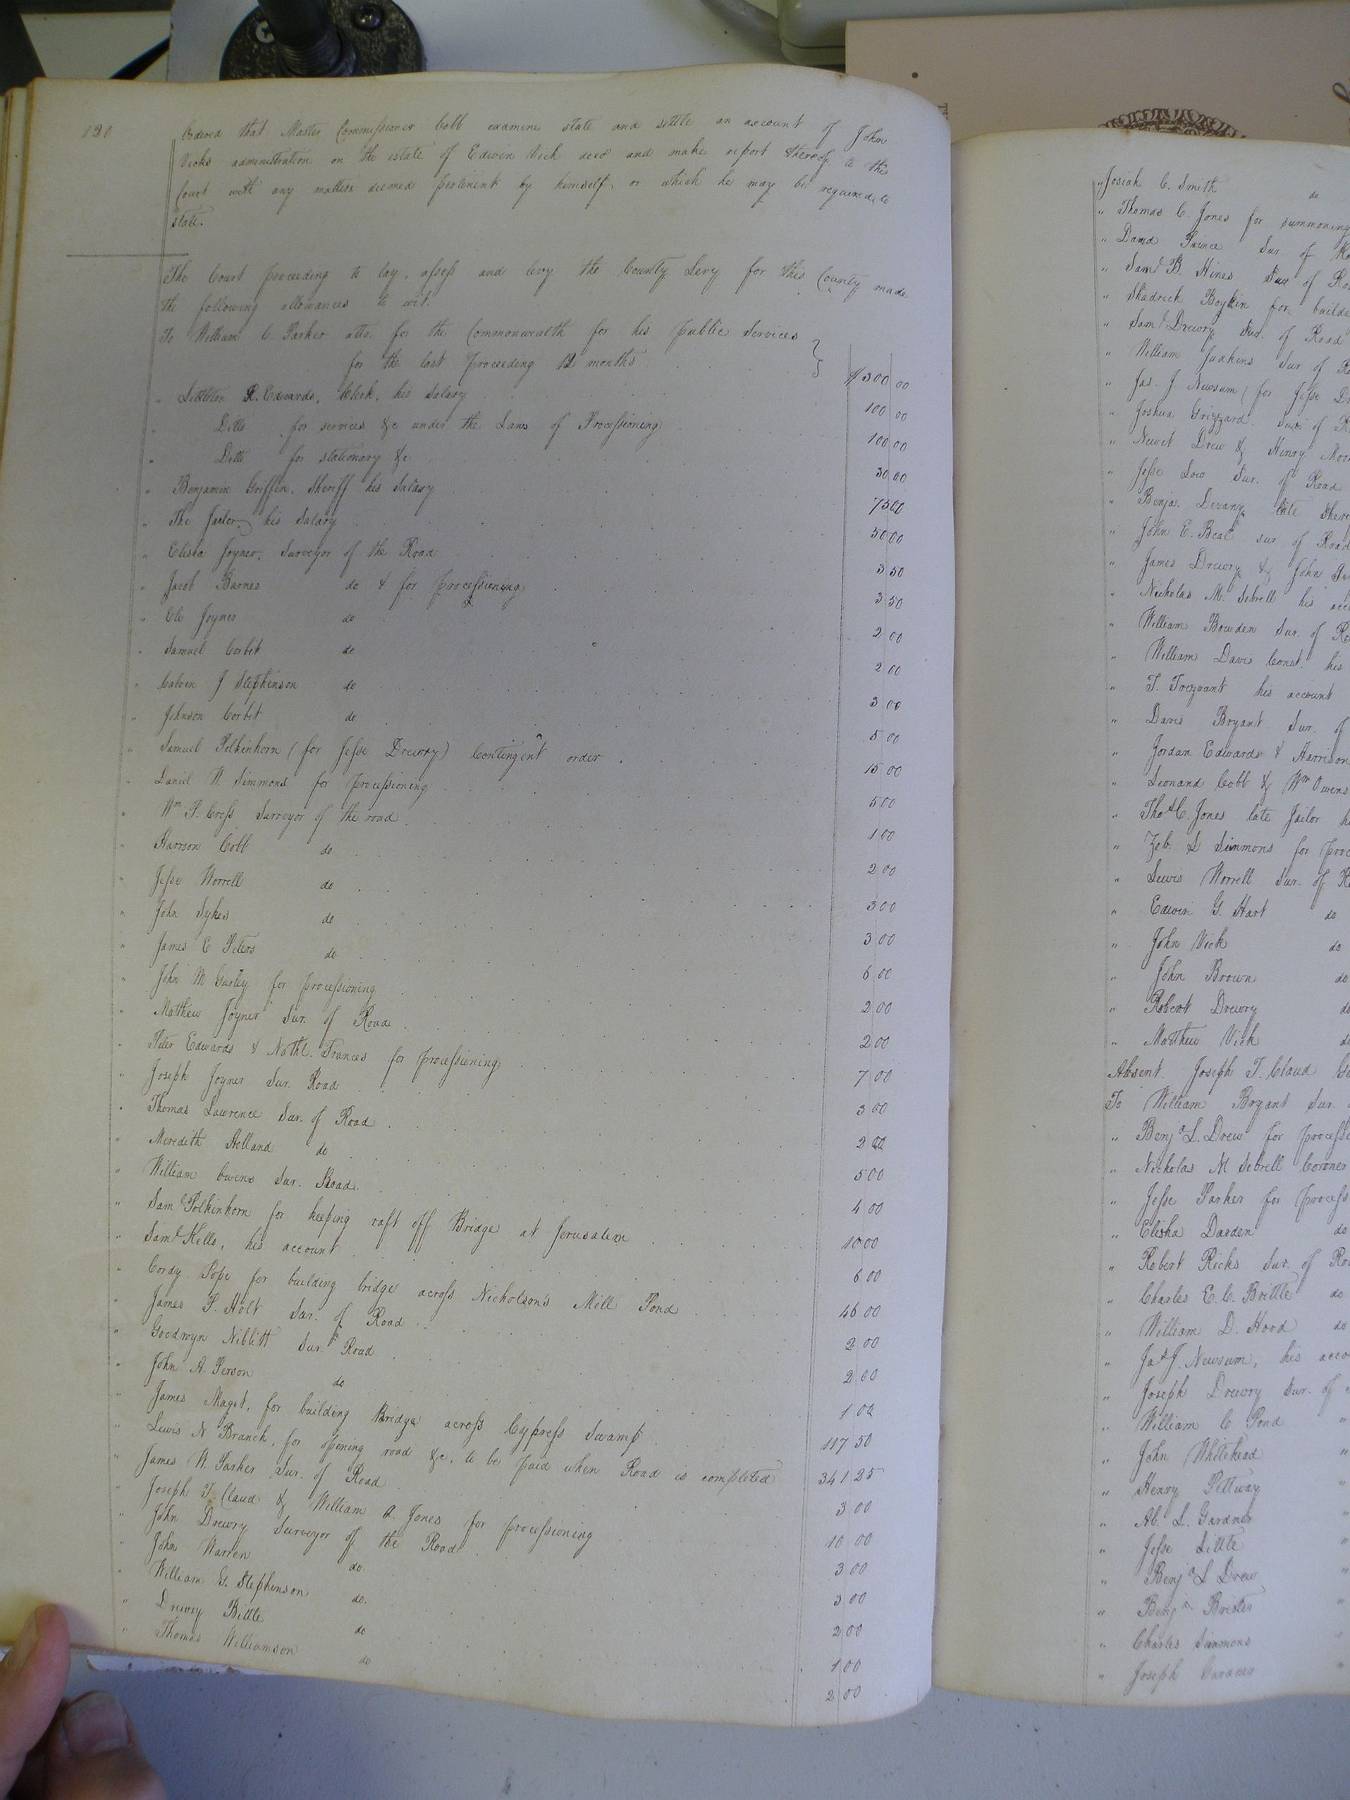 130
Ordered that Master Commissioner Cobb examine state and settle an account of John
Vicks administration on the estate of Edwin Vick decd and make report thereof to the
Court with any matters deemed pertinent by himself, or which he may be required to
state.
The Court proceeding to lay, assess and levy the County Levy for this County made
the following allowances to wit.
To William C. Parker atto. for the Commonwealth for his public Services
for the last preceeding 12 months $300 00
" Littleton R. Edwards, Clerk, his Salary 100 00
" Ditto for services &c under the Laws of Processioning 100 00
" Ditto for stationary &c 30 00
" Benjamin Griffin, Sheriff his Salary 75 00
" The Jailor, his Salary 50 00
" Elisha Joyner, Surveyor of the Road 3 50
" Jacob Barnes do & for processioning 3 50
" Eli Joyner do 2 00
" Samuel Corbit do 2 00
" Calvin J Stephenson do 3 00
" Johnson Corbit do 5 00
" Samuel Polkinhorn (for Jesse Drewry) Contingent order 15 00
" Daniel W. Simmons for processioning 5 00
" Wm P. Cross Surveyor of the road 1 00
" Harrison Cobb do 2 00
" Jesse Worrell do 3 00
" John Sykes do 3 00
" James E Peters do 6 00
" John M Gurley for processioning 2 00
" Matthew Joyner Sur. of Road 2 00
" Peter Edwards & Nathl. Frances for processioning 7 00
" Joseph Joyner Sur. Road 3 00
" Thomas Lawrence Sur. of Road 2 00
" Meredith Holland do 5 00
" William Owens Sur. Road 4 00
" Saml Polkinhorn for keeping raft off Bridge at Jerusalem 10 00
" Saml Kello, his account 6 00
" Cordy Pope for building bridge across Nicholson's Mill Pond 46 00
" James P. Holt Sur. of Road 2 00
" Goodwyn Niblitt Sur. Road 2 00
" John A. Person do 1 00
" James Maget, for building Bridge across Cypress Swamp 117 50
" Lewis N Branch, for opening road &c. to be paid when Road is completed 341 25
" James W. Parker Sur. of Road 3 00
" Joseph T Claud & William A. Jones for processioning 10 00
" John Drewry Surveyor of the Road 3 00
" John Warren do 3 00
" William G. Stephenson do 2 00
" Drewry Bittle do 1 00
" Thomas Williamson do 2 00
" Josiah C. Smith do
" Thomas C. Jones for summoning
" David Prince Sur. of
" Saml B. Hines Sur of
" Shadrick Boykin for
" Saml Drewry Sur. of Road
" William Judkins Sur of
" Jas. J. Newsum (for Jesse
" Joshua Grizzard Sur of
" Newit Drew & Henry
" Jesse Low Sur. of Road
" Benja. Devany late
" John E. Beal sur of Road
" James Drewry & John
" Nicholas M. Sebrell his
" William Bowden Sur. of
" William Davis Const. his
" T. Trezvant his account
" Davis Bryant Sur. of
" Jordan Edwards & Harrison
" Leonard Cobb & Wm Owens
" Thos C. Jones late Jailor
" Zeb. S Simmons for
" Lewis Worrell Sur. of
" Edwin G. Hart do
" John Vick do
" John Brown do
" Robert Drewry do
" Matthew Vick do
Absent. Joseph T. Claud
To William Bryant Sur.
" Benja L. Drew for
" Nicholas M Sebrell Coroner
" Jesse Parker for
" Elisha Darden do
" Robert Ricks Sur. of
" Charles E. C. Brittle do
" William D. Hood do
" Jas J. Newsum, his
" Joseph Drewry Sur. of
" William C Pond "
" John Whitehead "
" Henry Pettway "
" Ab. L. Gardner "
" Jesse Little "
" Benja L Drew "
" Benja Brister
" Charles Simmons
" Joseph